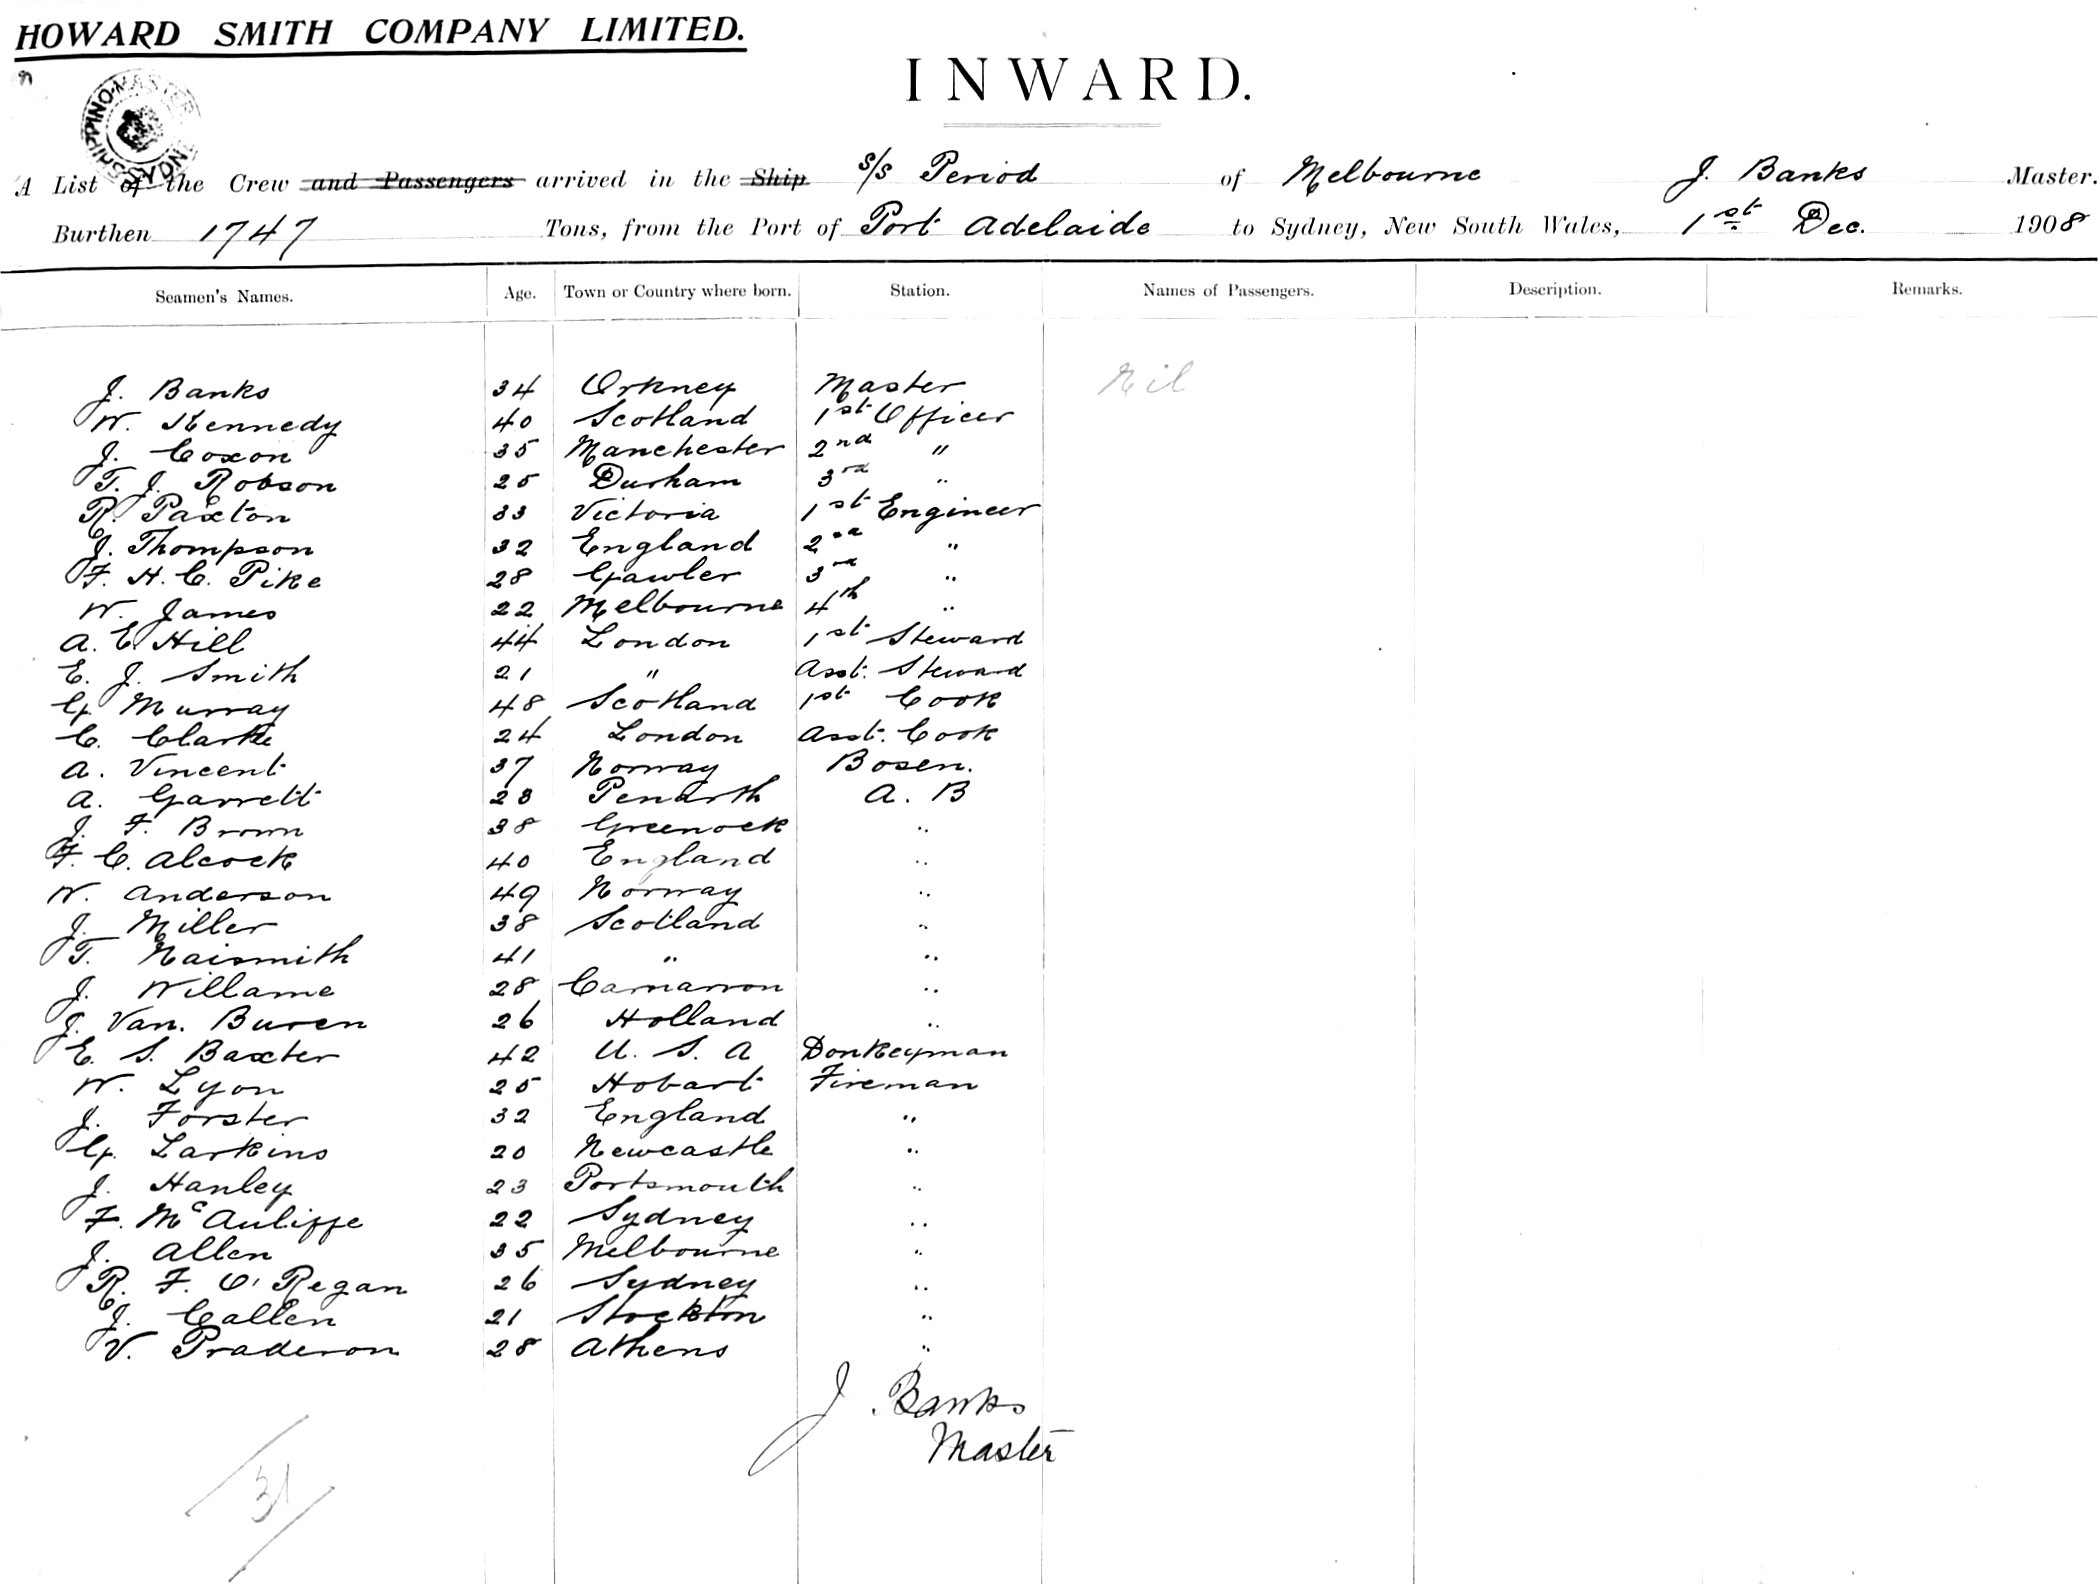 HOWARD SMITH COMPANY LIMITED.
INWARD.
A List of the Crew and Passengers arrived in the Ship s/s Period of Melbourne J. Banks Master.
Burthen 1747 Tons, from the Port of Port Adelaide to Sydney, New South Wales, 1st Dec. 1908
Seamen's Names. Age. Town or Country where born. Station. Names of Passengers. Description. Remarks.
J. Banks 34 Orkney Master Nil
W. Kennedy 40 Scotland 1st Officer
J. Coxon 35 Manchester 2nd "
T. J. Robson 25 Durham 3rd "
R. Paxton 33 Victoria 1st Engineer
J. Thompson 32 England 2nd "
F. H. C. Pike 28 Gawler 3rd "
W. James 22 Melbourne 4th "
A. E. Hill 44 London 1st Steward
E. J. Smith 21 " Asst. Steward
G. Murray 48 Scotland 1st Cook
C. Clarke 24 London Asst. Cook
A. Vincent 37 Norway Bosen.
A. Garrett 23 Penarth A. B
J. F. Brown 38 Greenock "
F. C. Alcock 40 England "
W. Anderson 49 Norway "
J. Miller 38 Scotland "
T. Naismith 41 " "
J. Willame 28 Carnarvon "
J. Van. Buren 26 Holland "
E. S. Baxter 42 U. S. A Donkeyman
W. Lyon 25 Hobart Fireman
J. Forster 32 England "
G. Larkins 20 Newcastle "
J. Hanley 23 Portsmouth "
F. McAuliffe 22 Sydney "
J. Allen 35 Melbourne "
R. F. O'Regan 26 Sydney "
J. Callen 21 Stockton "
V. Praderon 28 Athens "
J. Banks
Master
31